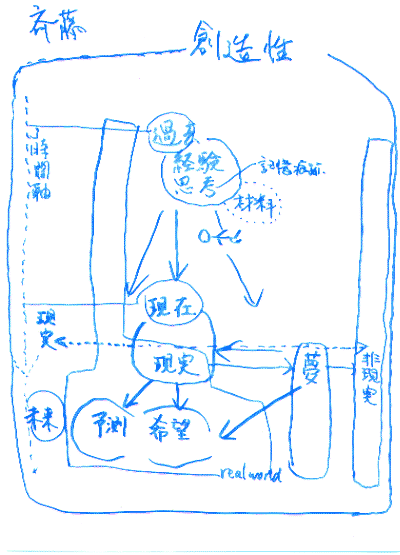 斉藤
創造性
過去
時間軸
経験
思考
記憶
材料
現在
現実
現実
夢
非現実
未来
予測
希望
real world